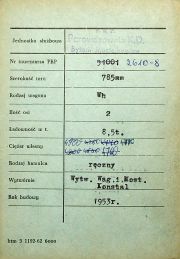 Jednostka służbowa
P K P
Parowozownia K.D.
Nr inwentarza PKP 91001 2610-8
Szerokość toru 785mm
Rodzaj wagonu Wh
Ilość osi 2
Ładowność w t. 8,5t.
Ciężar własny
Rodzaj hamulca ręczny
Wytwórnia Wytw. Wag. i Most.
Konstal
Rok budowy 1953r.